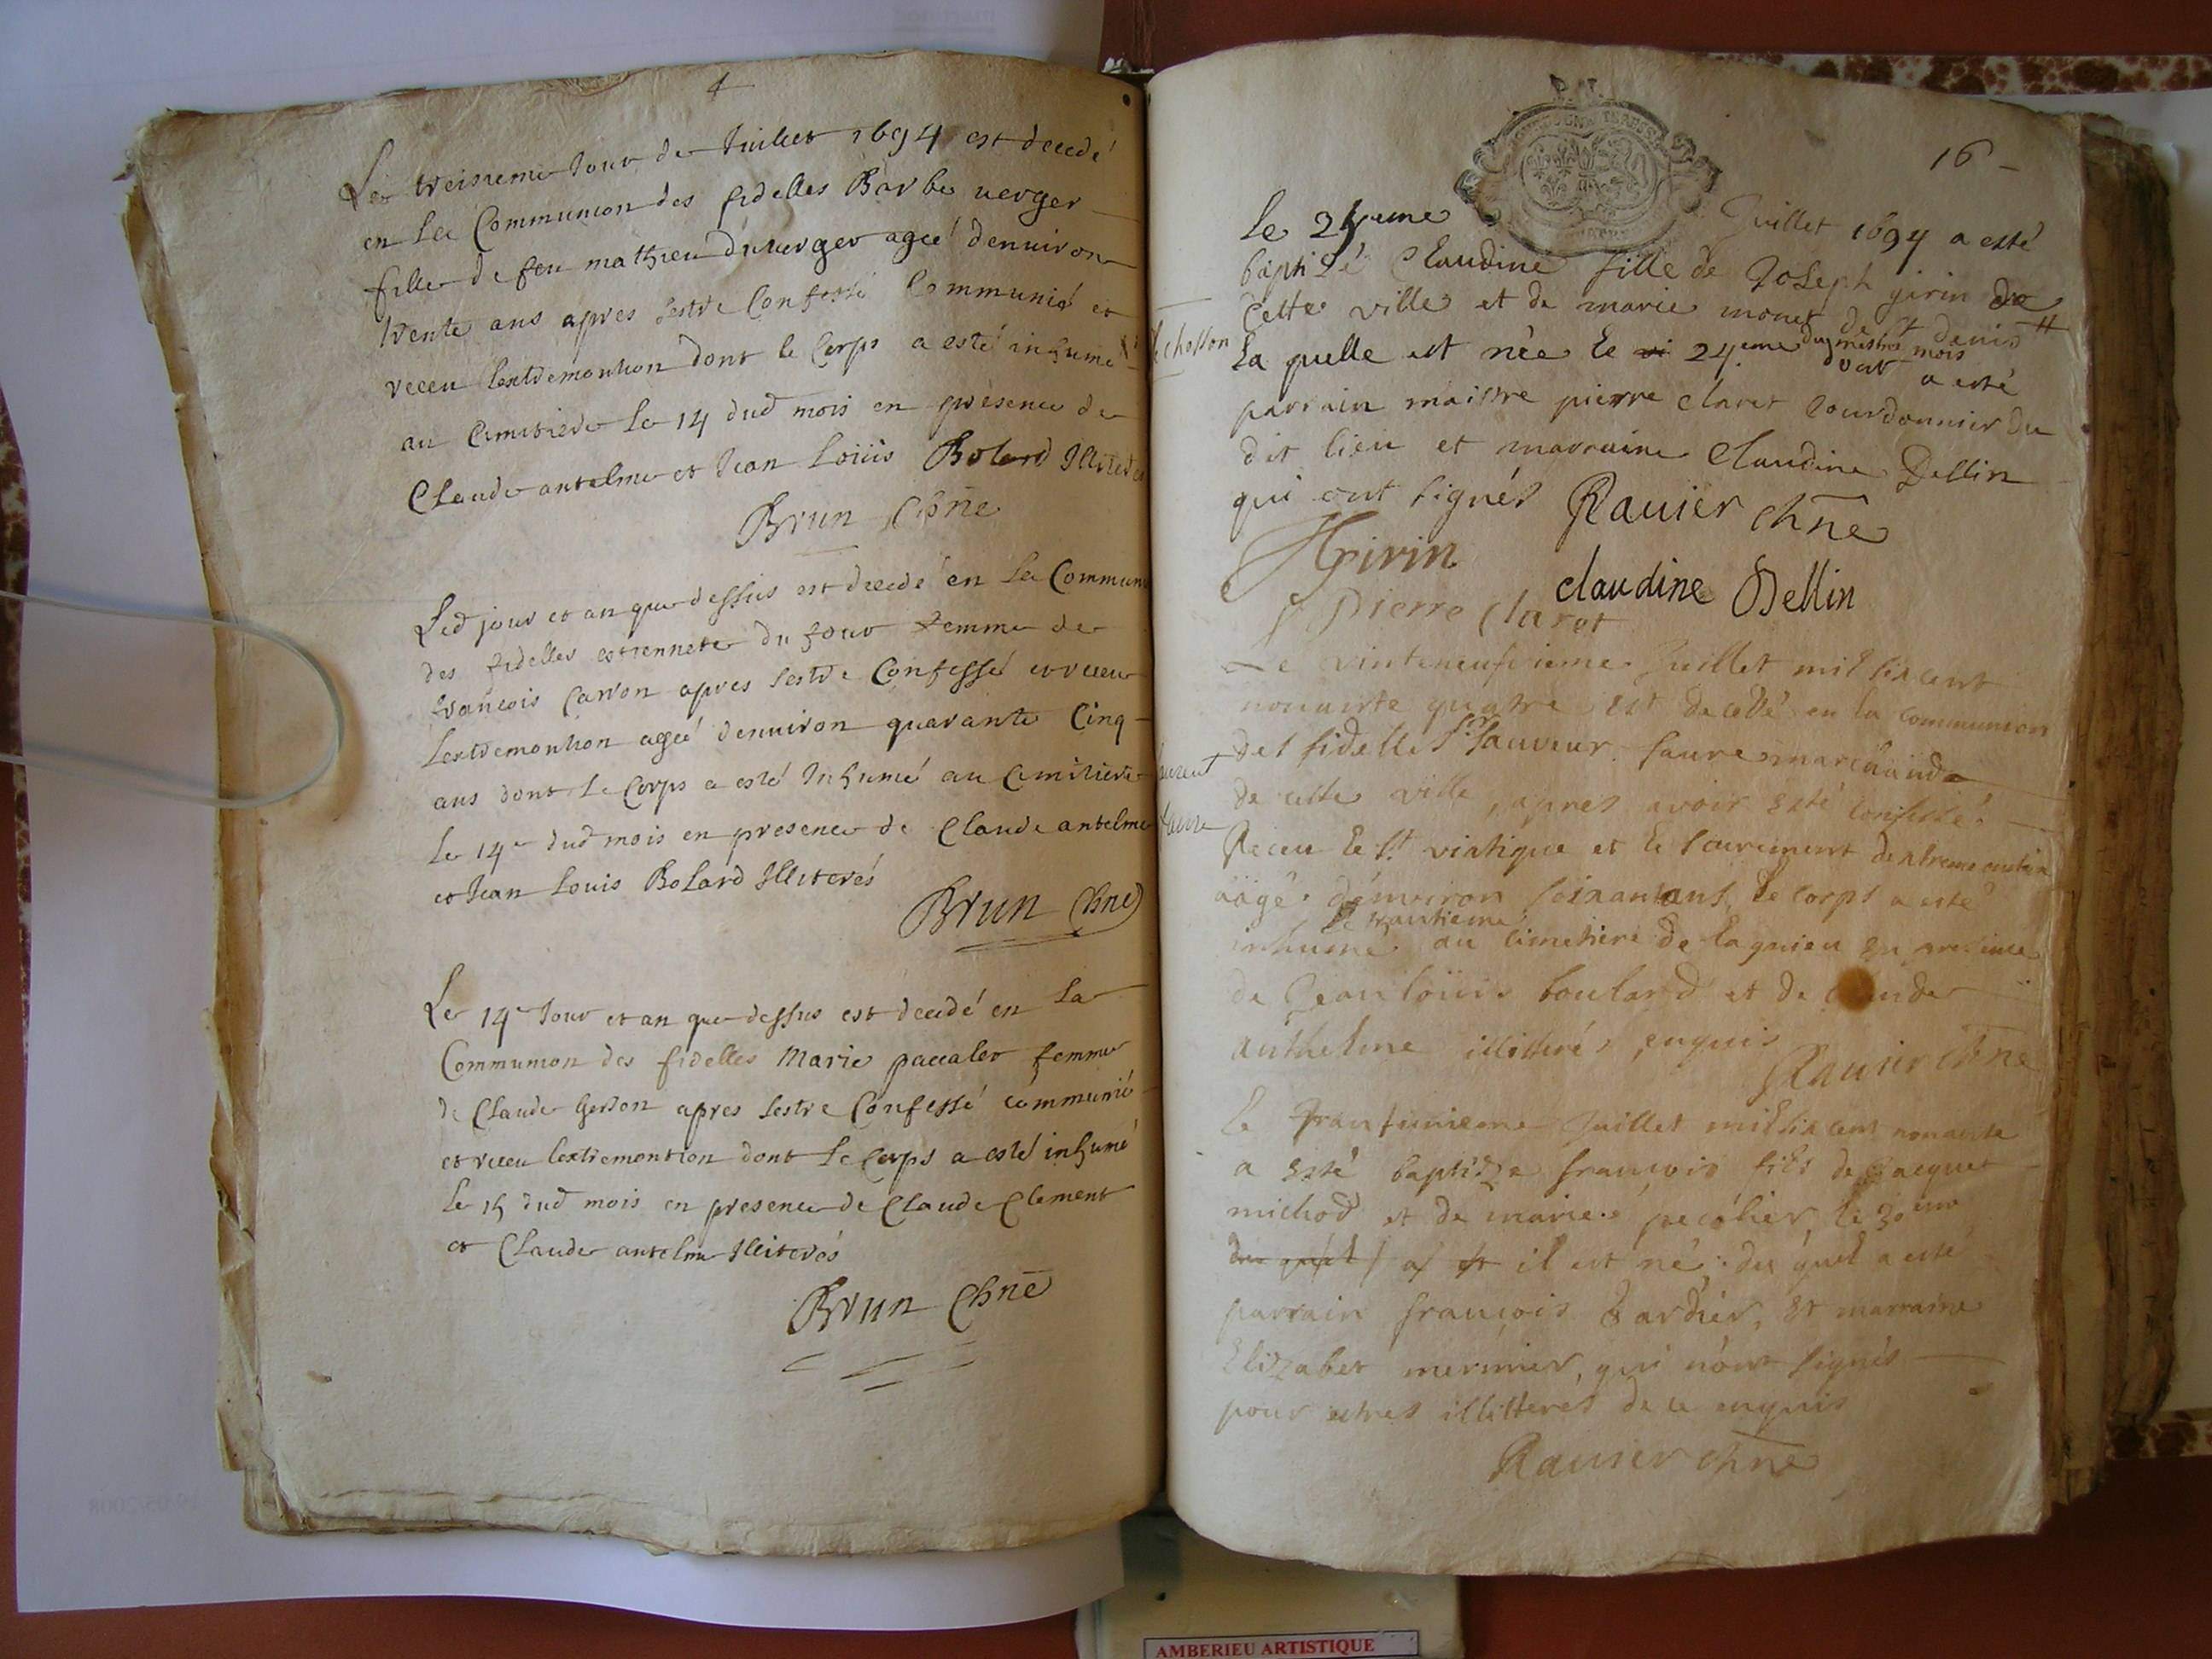 Le treisieme Jour de Juillet 1694 est decedé
en la Communion des fidelles Barbe verger
fille de feu mathieu duverger ageé denuiron
trente ans apres sestre Confessé Communié et
receu lextremontion dont le Corps a esté inhumé
au Cimitiere le 14 dud mois en presence de
Claude antelme et Jean Loüis Bolard Illiteres
Brun Chne
Led jour et an que dessus est decedé en la Commun
des fidelles estiennete du four femme de
françois Carron apres sestre Confessé et receu
lextremontion ageé denuiron quarante Cinq
ans dont le Corps a esté Inhumé au Cimitiere
le 14e dud mois en presence de Claude antelme
et Jean Louis Bolard Illiterés
Brun Chne
Le 14e Jour et an que dessus est decedé en la
Communion des fidelles Marie paccalet femme
de Claude gerson apres sestre Confessé communié
et receu lextremontion dont le Corps a esté inhumé
le 15 dud mois en presence de Claude Clement
et Claude antelme Illiterés
Brun Chne
16
le 24eme Juillet 1694 a esté
baptisé Claudine fille de Joseph girin de
Cette ville et de marie monet de St denis
la quelle est née le 24eme dud mois
a esté
parrain maistre pierre claret Courdonnier du
dit lieu et marraine Claudine Dellin
qui ont signés Rauier chne
Girin
claudine Dellin
Pierre Claret
Le vinteneufvieme Juillet mil six cent
nonante quatre est decedé en la communion
des fidelles Sr Sauveur faure marchand
de cette ville, apres avoir esté confessé
Receu le St viatique et le sacrement dextreme onction
äägé denviron soixantans, le corps a esté
le trantieme
inhumé au cimetiere de lagnieu en presence
de Jean loüis boulard et de claude
anthelme illitterés, enquis
Rauier chne
le trantunieme Juillet mil six cent nonante
a esté baptizé françois fils de Jacques
michod et de marie pecolier, le 30eme
il est né: du quel a esté
parrain françois Bardier, et marraine
Elizabet mermier, qui n'ont signés
pour estres illitterés de ce enquis
Rauier chne
AMBERIEU ARTISTIQUE